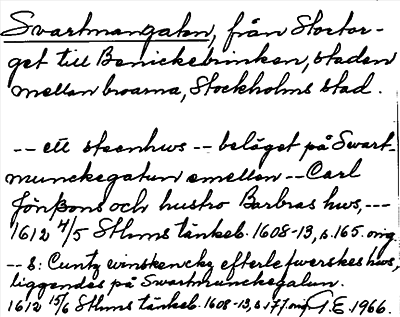 Svartmangatan, från Stortor-
get till Benickebrinken, staden
mellan broarna, Stockholms stad.
-- ett steenhws -- beläget på Swart-
munckegatun emellan -- Carl
Jönßons och hustro Barbras hws, --
1612 4/5 Sthms tänkeb. 1608-13, s. 165. orig.
-- s: Cuntz winskenckz efterlefwerskes hws,
liggendes på Swartmunckegatun.
1612 15/6 Sthms tänkeb. 1608-13, s. 177. orig. G.E. 1966.